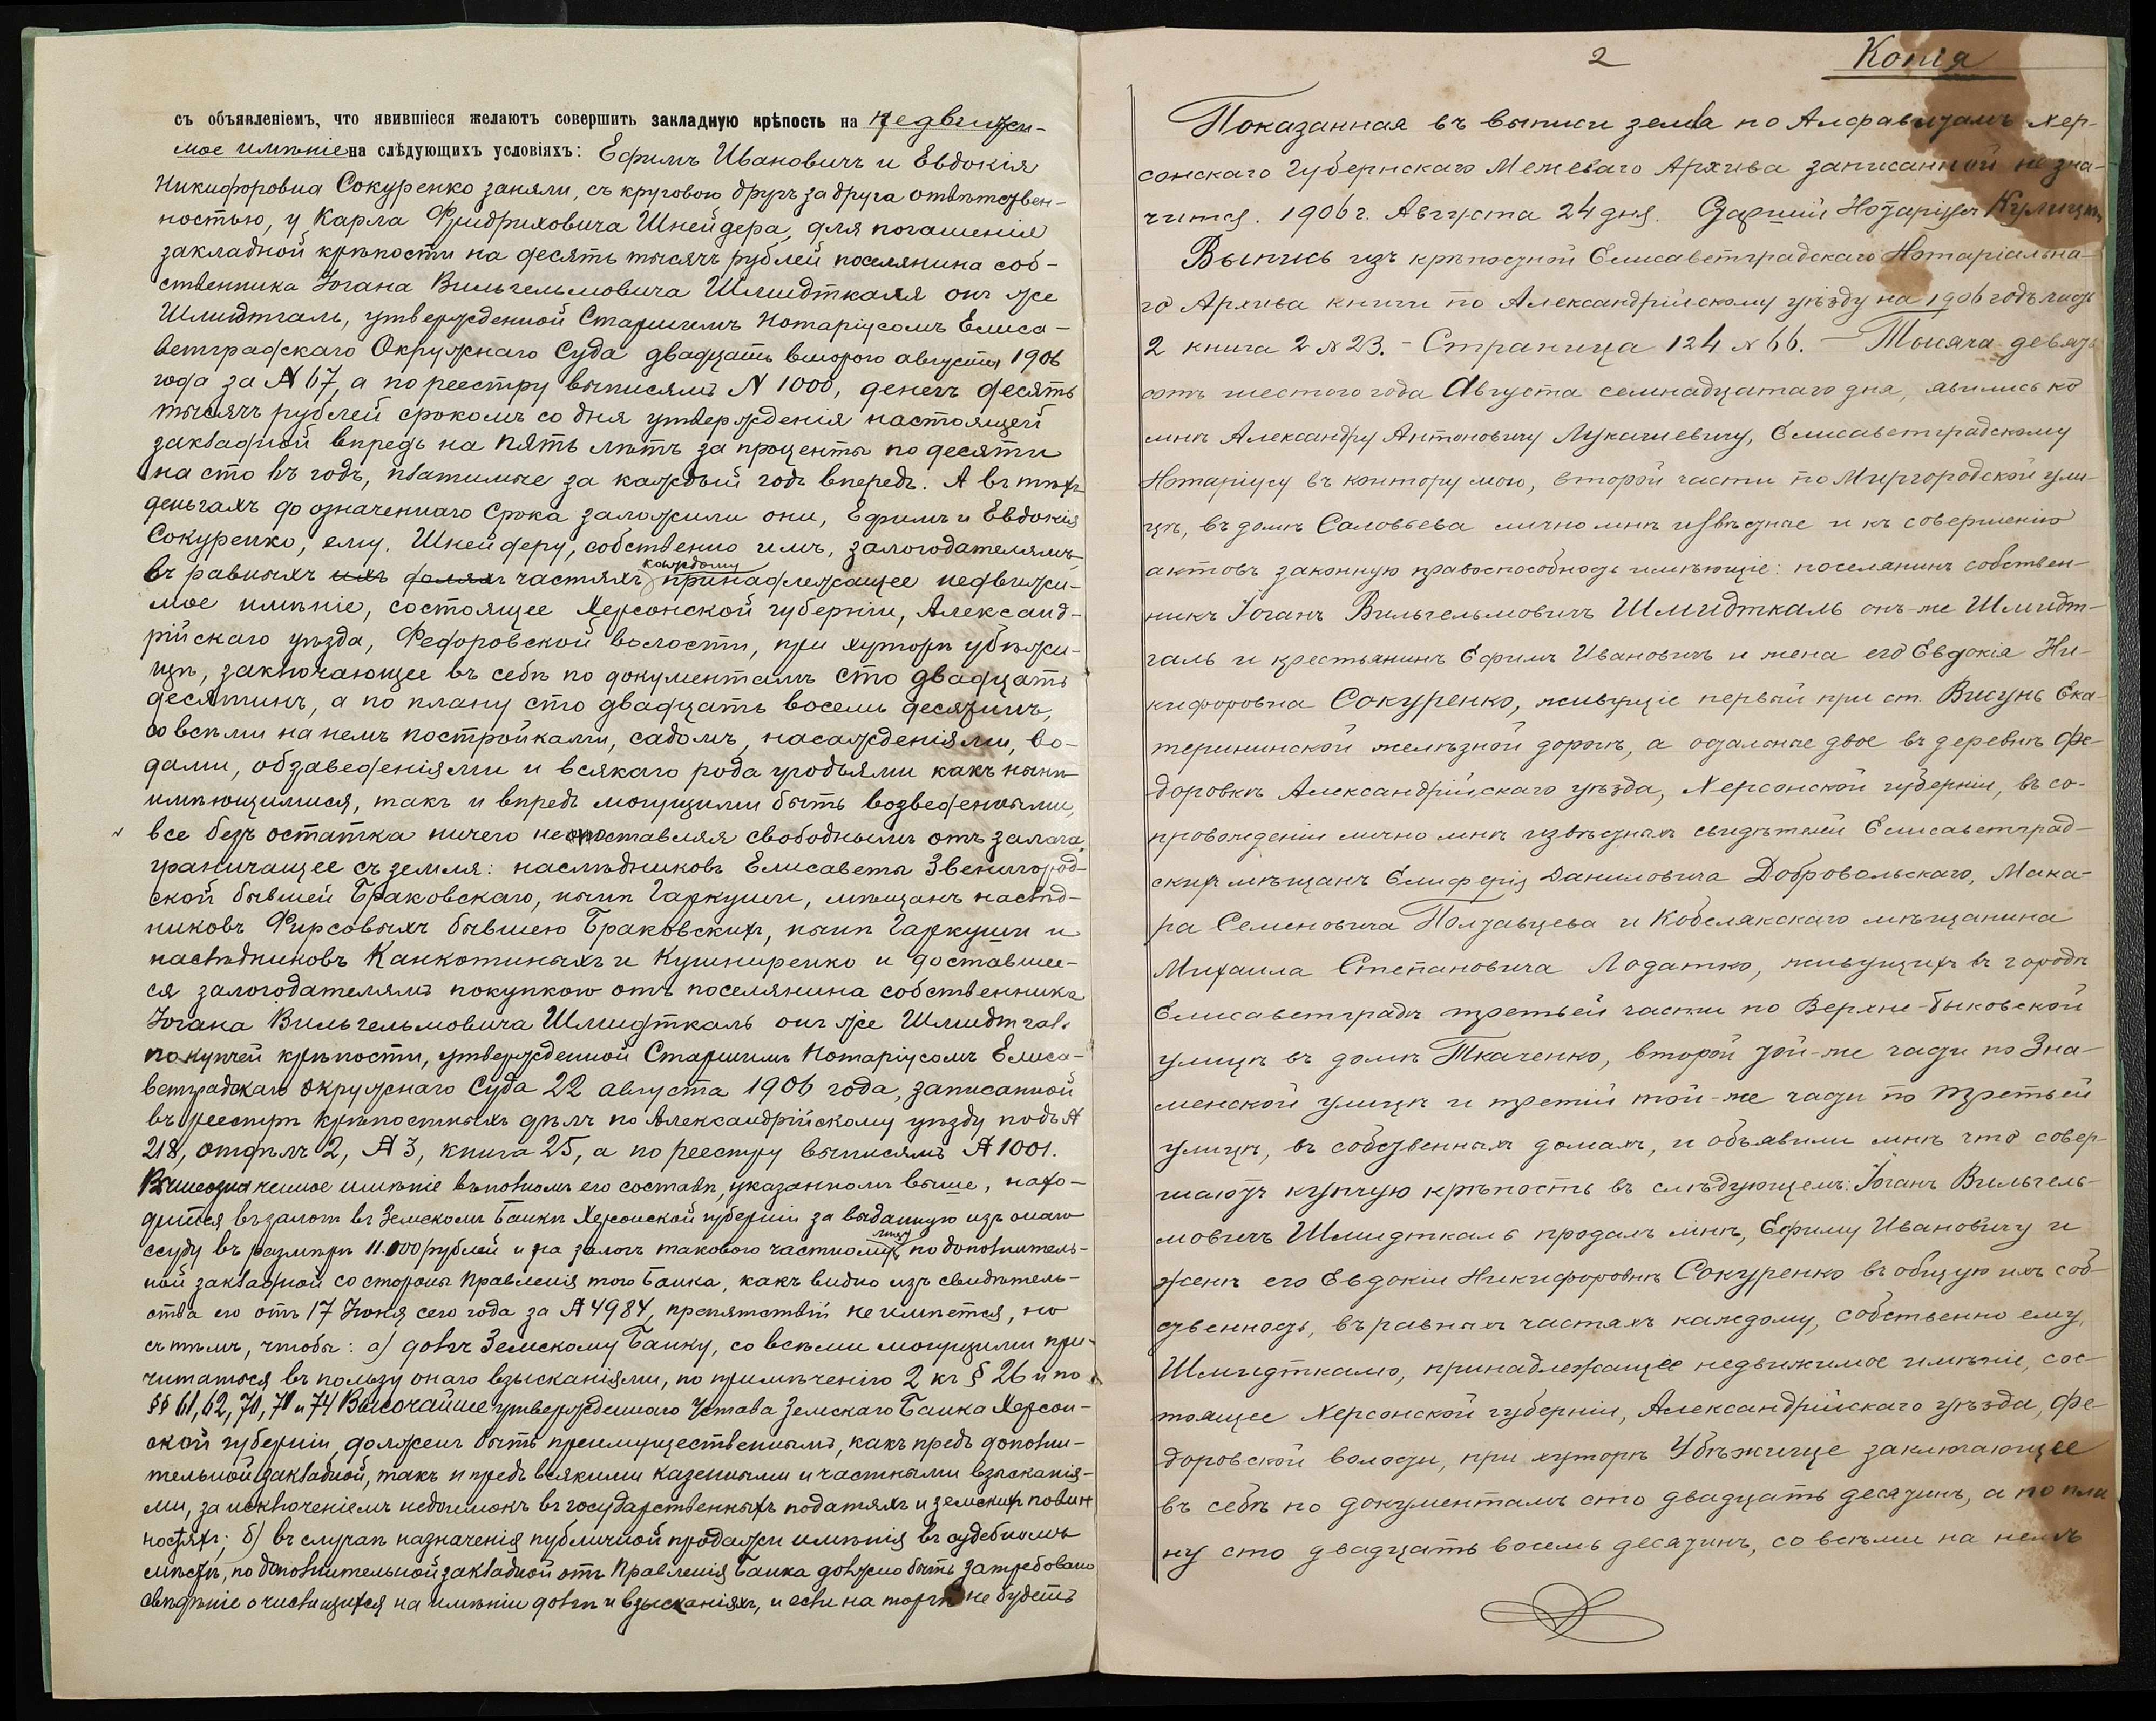 съ объявленіемъ, что явившіеся желаютъ совершить закладную крѣпость на недвижи-
мое имѣніе на слѣдующихъ условіяхъ: Ефимъ Ивановичъ и Евдокія
Никифоровна Сокуренко заняли, съ круговою другъ за друга отвѣтствен-
ностью, у Карла Фридриховича Шнейдера, для погашенія
закладной крѣпости на десять тысячъ рублей поселянина соб-
ственника Іогана Вильгельмовича Шмидткаля онъ же
Шмидтгаль, утвержденной Старшимъ Нотаріусомъ Елиса-
ветградскаго Окружнаго Суда двадцать второго августа 1906
года за № 67, а по реестру выписямъ № 1000, денегъ десять
тысячъ рублей срокомъ со дня утвержденія настоящей
закладной впредь на пять лѣтъ за проценты по десяти
на сто въ годъ, платимые за каждый годъ впередъ. А въ тѣхъ
деньгахъ до означеннаго срока заложили они, Ефимъ и Евдокія
Сокуренко, ему, Шнейдеру, собственно имъ, залогодателямъ,
въ равныхъ ихъ доляхъ частяхъ каждому принадлежащее недвижи-
мое имѣніе, состоящее Херсонской губерніи, Александ-
рійскаго уѣзда, Федоровской волости, при хуторѣ Убѣжи-
щѣ, заключающее въ себѣ по документамъ сто двадцать
десятинъ, а по плану сто двадцать восемь десятинъ,
со всѣми на немъ постройками, садомъ, насажденіями, во-
дами, обзаведеніями и всякаго рода угодьями какъ нынѣ
имѣющимися, такъ и впредь могущими быть возведенными,
все безъ остатка ничего не оставляя свободнымъ отъ залога,
граничащее съ земля: наслѣдниковъ Елисаветы Звенигород-
ской бывшей Браковскаго, нынѣ Гаркуши, мѣщанъ наслѣд-
никовъ Фирсовыхъ бывшею Браковскихъ, нынѣ Гаркуши и
наслѣдниковъ Канкотиныхъ и Кушниренко и доставшее-
ся залогодателямъ покупкою отъ поселянина собственника
Іогана Вильгельмовича Шмидткаль онъ же Шмидтгаль
по купчей крѣпости, утвержденной Старшимъ Нотаріусомъ Елиса-
ветградскаго Окружнаго Суда 22 августа 1906 года, записанной
въ реестръ крѣпостныхъ дѣлъ по Александрійскому уѣзду подъ №
218, отдѣлъ 2, № 3, книга 25, а по реестру выписямъ № 1001.
Вышеозначенное имѣніе въ полномъ его составѣ, указанномъ выше, нахо-
дится въ залогѣ въ Земскомъ Банкѣ Херсонской губерніи за выданную изъ онаго
ссуду въ размѣрѣ 11.000 рублей и на залогъ такового частному лицу по дополнитель-
ной закладной со стороны Правленія того Банка, какъ видно изъ свидѣтель-
ства его отъ 17 Іюня сего года за № 4984, препятствій не имѣется, но
съ тѣмъ, чтобы: а) долгъ Земскому Банку, со всѣми могущими при-
читаться въ пользу онаго взысканіями, по примѣчанію 2 къ § 26 и по
§§ 61, 62, 70, 71 и 74 Высочайше утвержденнаго Устава Земскаго Банка Херсон-
ской губерніи, долженъ быть преимущественнымъ, какъ предъ дополни-
тельной закладной, такъ и предъ всякими казенными и частными взысканія-
ми, за исключеніемъ недоимокъ въ государственныхъ податяхъ и земскихъ повин
ностяхъ; б) въ случаѣ назначенія публичной продажи имѣнія въ судебномъ
мѣстѣ, по дополнительной закладной отъ Правленія Банка должно быть затребовано
свѣдѣніе о числящихся на имѣніи долгѣ и взысканіяхъ, и если на торгѣ не будетъ
2 Копія
Показанная въ выписи земля по Алфавитамъ Хер-
сонскаго Губернскаго Межеваго Архива записанной не зна-
чится. 1906 г. Августа 24 дня. Старшій Нотаріусъ
Выпись изъ крѣпостной Елисаветградскаго Нотаріальна-
го Архива книги по Александрійскому уѣзду на 1906 годъ часть
2 книга 2 № 23. – Страница 124 № 66. – Тысяча девять
сотъ шестого года Августа семнадцатаго дня, явились ко
мнѣ Александру Антоновичу Лукашевичу, Елисаветградскому
Нотаріусу въ контору мою, второй части по Миргородской ули-
цѣ, въ домѣ Соловьева лично мнѣ извѣстные и къ совершенію
актовъ законную правоспособность имѣющіе: поселянинъ собствен-
никъ Іоганъ Вильгельмовичъ Шмидткаль онъ-же Шмидт-
галь и крестьянинъ Ефимъ Ивановичъ и жена его Евдокія Ни-
кифоровна Сокуренко, живущіе первый при ст. Висунь Ека-
терининской желѣзной дорогѣ, а остальные двое въ деревнѣ Фе-
доровкѣ Александрійскаго уѣзда, Херсонской губерніи, въ со-
провожденіи лично мнѣ извѣстныхъ свидѣтелей Елисаветград-
скихъ мѣщанъ Елиферія Даниловича Добровольскаго, Мака-
ра Семеновича Полтавцева и Кобелякскаго мѣщанина
Михаила Степановича Лодатко, живущихъ въ городѣ
Елисаветградѣ третьей части по Верхне-Быковской
улицѣ въ домѣ Ткаченко, второй той-же части по Зна-
менской улицѣ и третій той-же части по третьей
улицѣ, въ собственныхъ домахъ, и объявили мнѣ что совер-
шаютъ купчую крѣпость въ слѣдующемъ: Іоганъ Вильгель-
мовичъ Шмидткаль продалъ мнѣ, Ефиму Ивановичу и
женѣ его Евдокіи Никифоровнѣ Сокуренко въ общую ихъ соб-
ственность, въ равныхъ частяхъ каждому, собственно ему,
Шмидткалю, принадлежащее недвижимое имѣніе, сос-
тоящее Херсонской губерніи, Александрійскаго уѣзда, Фе-
доровской волости, при хуторѣ Убѣжище заключающее
въ себѣ по документамъ сто двадцать десятинъ, а по пла
ну сто двадцать восемь десятинъ, со всѣми на немъ